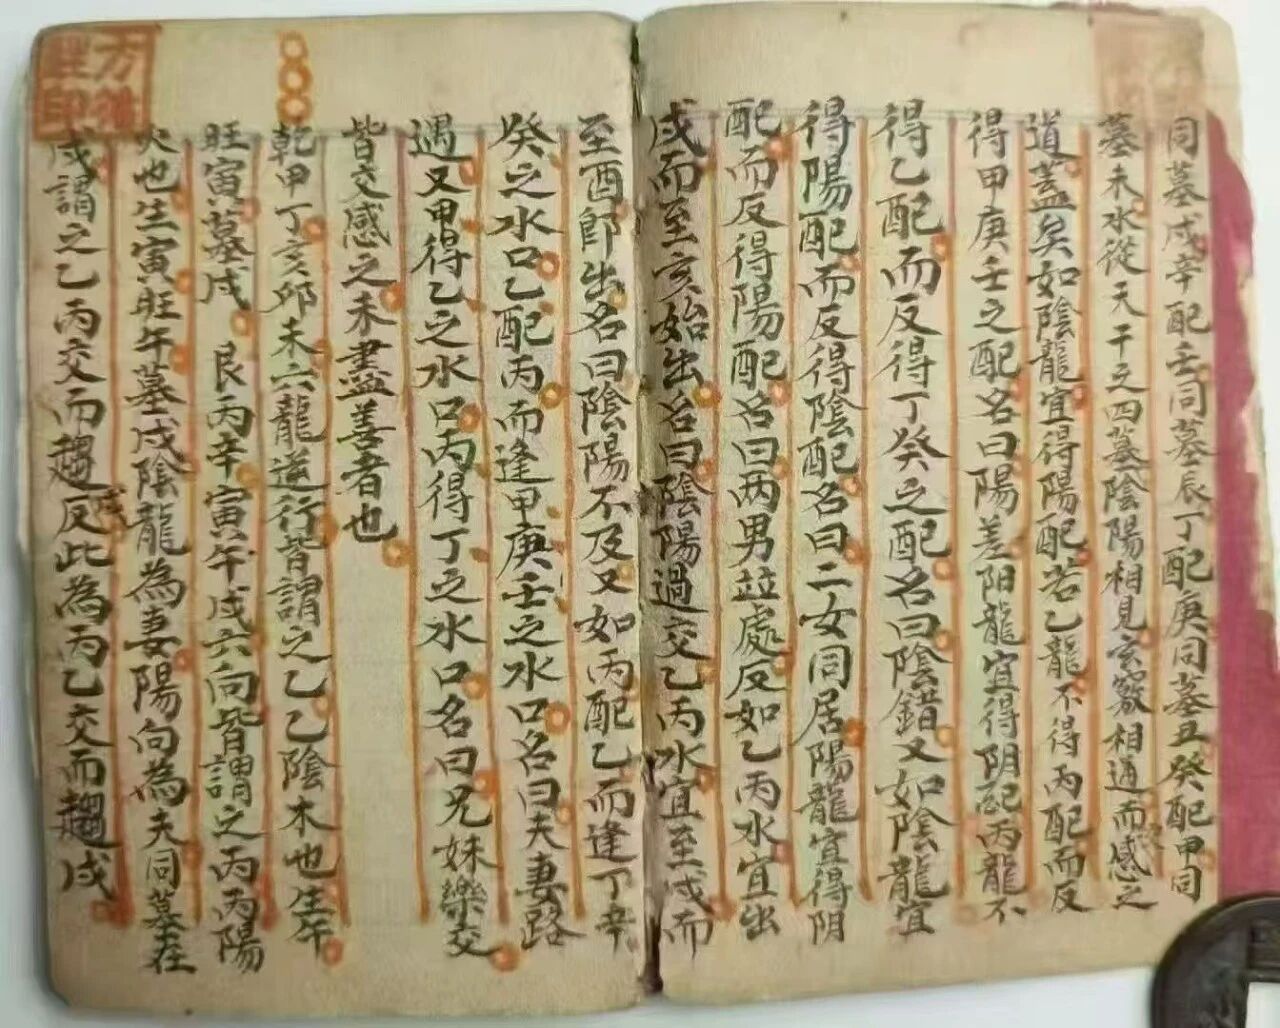 同墓戌辛配壬同墓辰丁配庚同墓丑癸配甲同
墓未水從天干之四墓陰陽相見玄竅相通而感之
道盖矣如陰龍宜得陽配若乙龍不得丙配而反
得甲庚壬之配名曰陽差阳龍宜得阴配丙龍不
得乙配而反得丁癸之配名曰陰錯又如陰龍宜
得陽配而反得陰配名曰二女同居陽龍宜得阴
配而反得陽配名曰两男並處反如乙丙水宜出
戌而至亥始出名曰陰陽過交乙丙水宜至戌而
至酉郎出名曰陰陽不及又如丙配乙而逢丁辛
癸之水口乙配丙而逢甲庚壬之水口名曰夫妻路
遇又甲得乙之水口丙得丁之水口名曰兄妹樂交
皆交感之未盡善者也
乾甲丁亥卯未六龍逆行皆謂之乙乙陰木也生午
旺寅墓戌 艮丙辛寅午戌六向皆謂之丙丙陽
火也生寅旺午墓戌陰龍為妻陽向為夫同墓在
戌謂之乙丙交而趨戌反此為丙乙交而趨戌